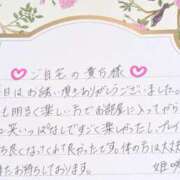 ご自宅の貴方様
日はお誘い頂きありがとうございまし
も明るく楽しい方でお部屋に入ってから
笑いっぱなしですごく楽しかったし、プレイ
ち良くなってまで良かったです。体の方は大丈
またお待ちしております。姫